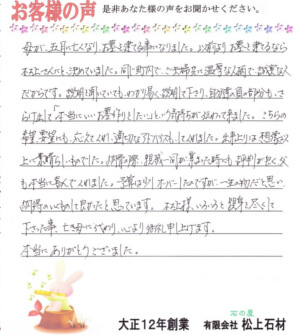 お客様の声 是非あなた様の声をお聞かせください。
母が、五月に亡くなり お墓を建てる事になりました。以前より お墓を建てるなら
松上さんにと決めていました。同じ町内で、ご夫婦共に温厚な人柄で、誠実な人
だからです。説明を聞いていても、わかり易く説明して下さり、自分達の負の部分も、さ
らけ出して「本当にいいお墓を作りたい」という気持ちが伝わって来ました。こちらの
希望、要望にも、応えてくれ、適切なアドバイスも、してくれました。出来上りは想像以
上に素晴らしいものでした。納骨の際、親戚一同が集まった時にも評判が良く父
も本当に喜んでくれました。予算は少しオーバーしたのですが、一生の物だと思い
納得のいくものして良かったと思っています。松上様、いろいろと親身に尽くして
下さった事、亡き母になりかわり、心よりお礼申し上げます。
本当にありがとうございました。
大正12年創業
石の屋
有限会社 松上石材